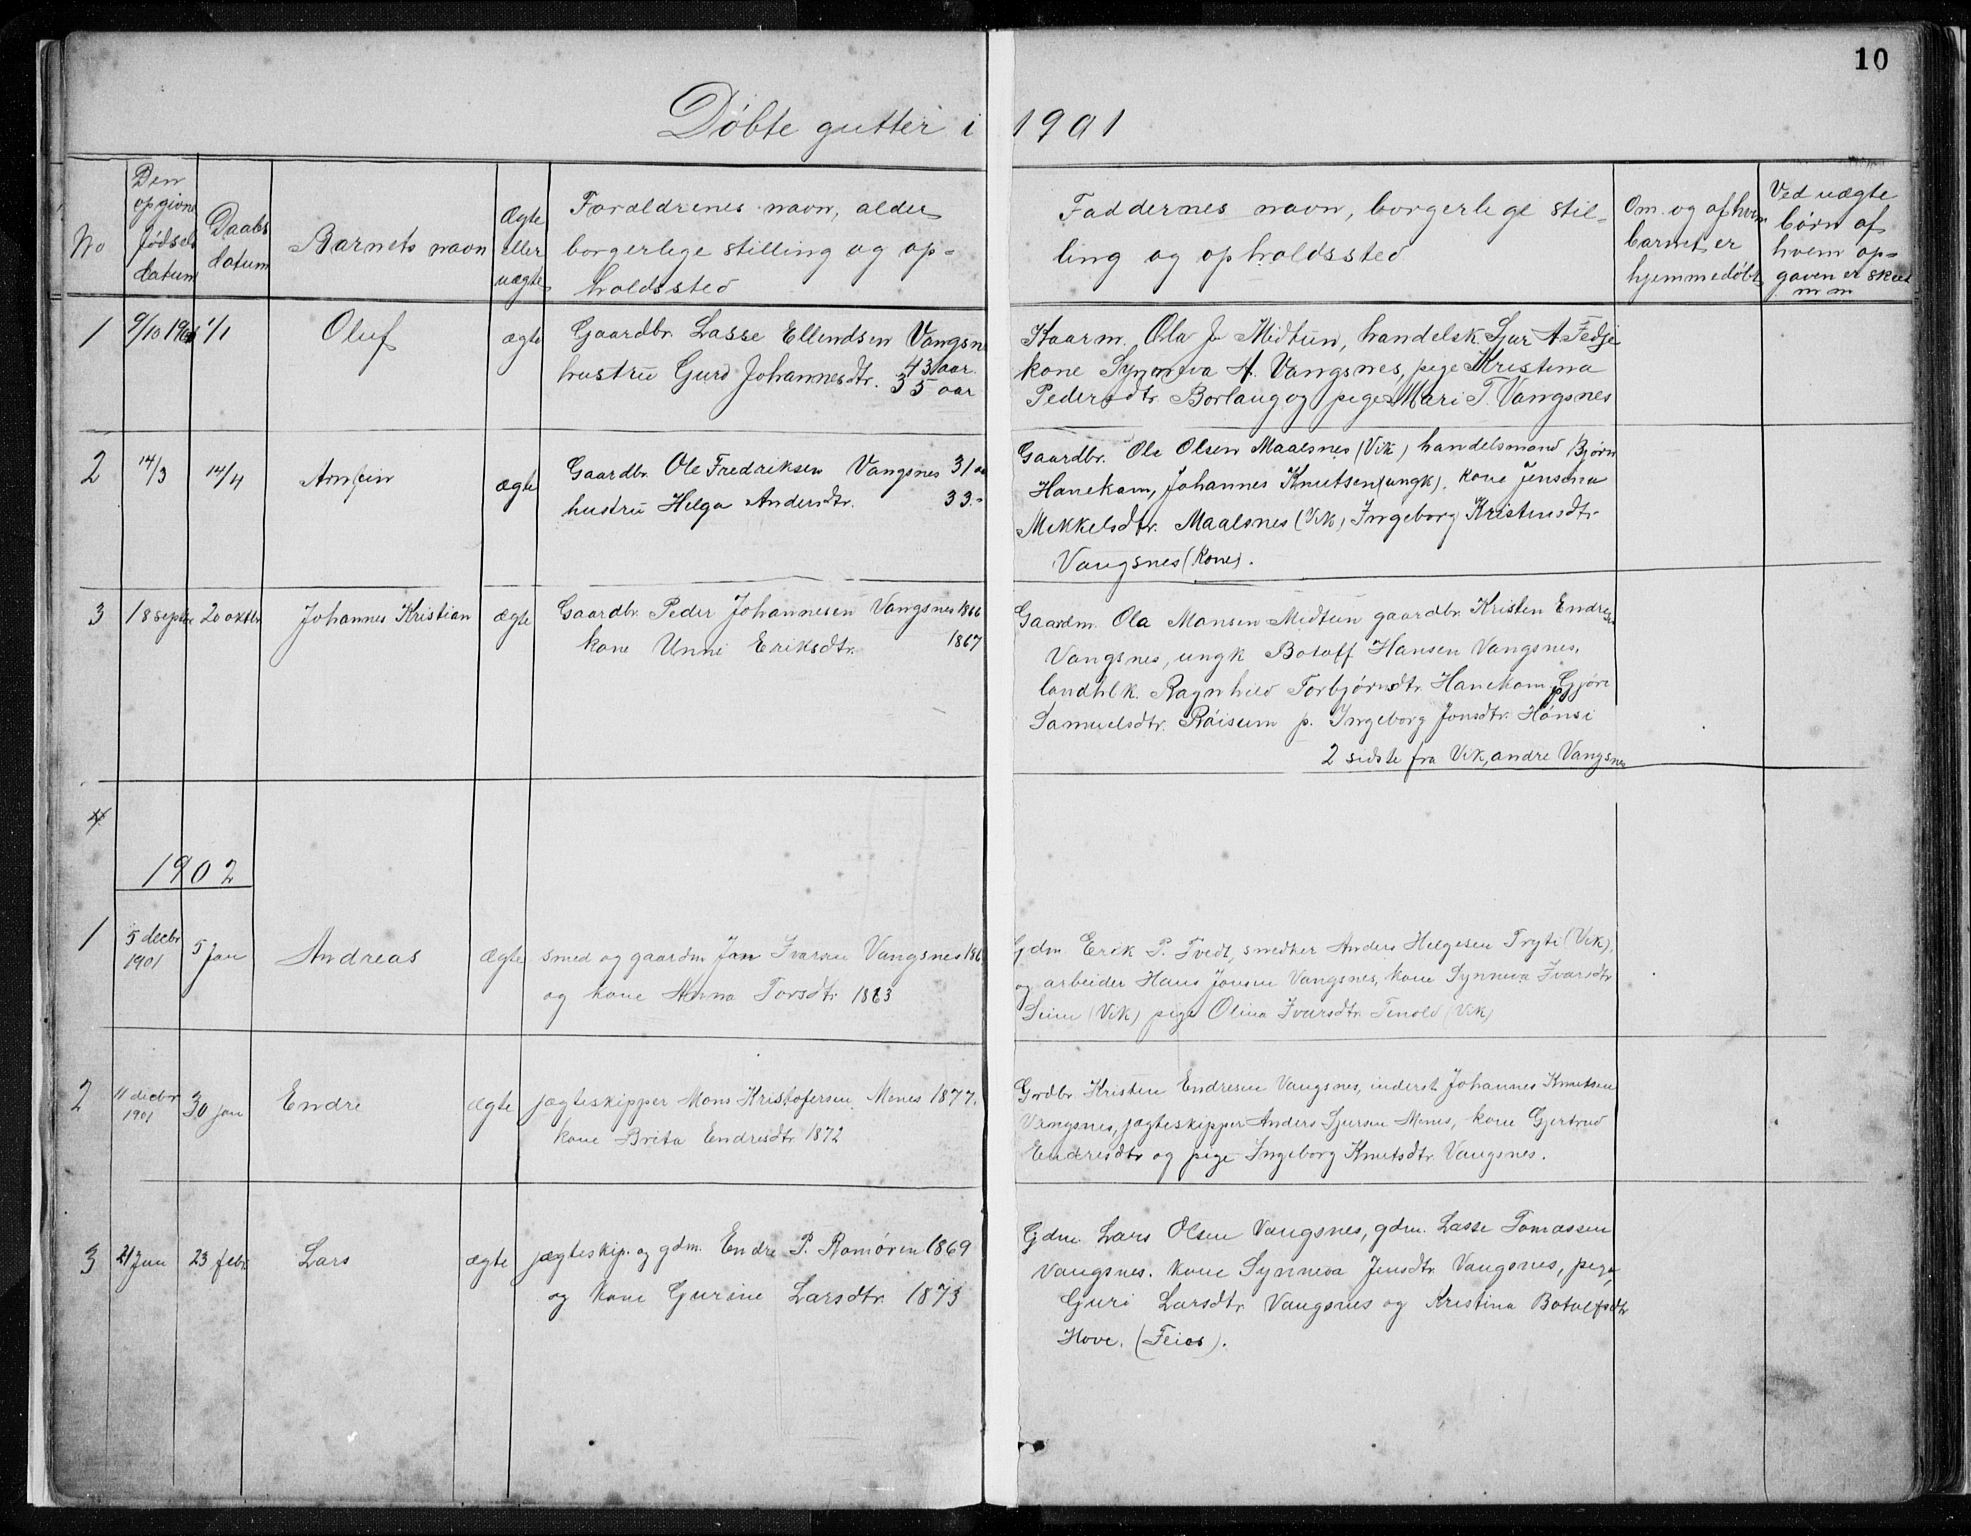 10
Døbte gutter i 1901
No
Den opgivne fødsels datum
Daabs datum
Barnets navn
Ægte eller uægte
Forældrenes navn, alder
borgerlige stilling og op-
holdssted
Faddernes navn, borgerlige stil-
ling og opholdssted
Om og af hvem
barnet er
hjemmedøbt
Ved uægte
børn af
hvem op-
gaven er skeet
m m
1 9/10 1900 1/1 Oluf ægte Gaardbr. Lasse Ellendsen Vangsn
43 aar
hustru Guro Johannesdtr. 35 aar
Kaarm. Ola J. Midtun, handelsk. Sjur A Fedje
kone Synneva A. Vangsnes, pige Kristina
Pedersdtr. Borlaug og pige Mari T. Vangsnes
2 14/3 14/4 Arnfin ægte Gaardbr. Ole Fredriksen Vangsnes 31 aa
hustru Helga Andersdtr. 33 -
Gaardbr. Ole Olsen Maalsnes (Vik) handelsmand Bjørn
Hanekam, Johannes Knutsen (ungk). kone Jensina
Mikkelsdtr. Maalsnes (Vik) Ingeborg Kristensdtr
Vangsnes (Kone).
3 18 septbr 20 oktbr Johannes Kristian ægte Gaardbr. Peder Johannesen Vangsnes 1866
kone Unni Eriksdtr. 1867
Gaardm. Ola Monsen Midtun gaardbr. Kristen Endresen
Vangsnes, ungk Botolf Hansen Vangsnes,
landhlk. Ragnhild Torbjørnsdtr. Hanekam, p Gjøre
Samuelsdtr. Røisum p. Ingeborg Jonsdtr. Hønsi
2 sidste fra Vik, andre Vangsnes
4
1902
1 5 decbr 1901 5 Jan Andreas ægte smed og gaardm Jan Ivarsen Vangsnes 186
og kone Anna Torsdtr 1863
Gdm. Erik P. Tvedt, snedker Anders Helgesen Tryti (Vik),
og arbeider Hans Jonsen Vangsnes, kone Synneva Ivarsdtr
Seim (Vik) pige Olina Ivarsdtr. Tenold (Vik)
2 11 decbr 1901 30 jan Endre ægte jægteskipper Mons Kristofersen Menes 1877.
kone Brita Endresdtr. 1872
Grdbr. Kristen Endresen Vangsnes, inderst Johannes Knutsen
Vangsnes, jægteskipper Anders Sjursen Menes, kone Gjertrud
Endresdtr og pige Ingeborg Knutsdtr. Vangsnes.
3 21 Jan 23 febr. Lars ægte jægteskip. og gdm. Endre P. Romøren 1869
og kone Gurine Larsdtr. 1873
Gdm. Lars Olsen Vangsnes, gdm. Lasse Tomassen
Vangsnes. kone Synneva Jensdtr. Vangsnes, pige
Guri Larsdtr. Vangsnes og Kristina Botolfsdtr
Hove. (Feios).